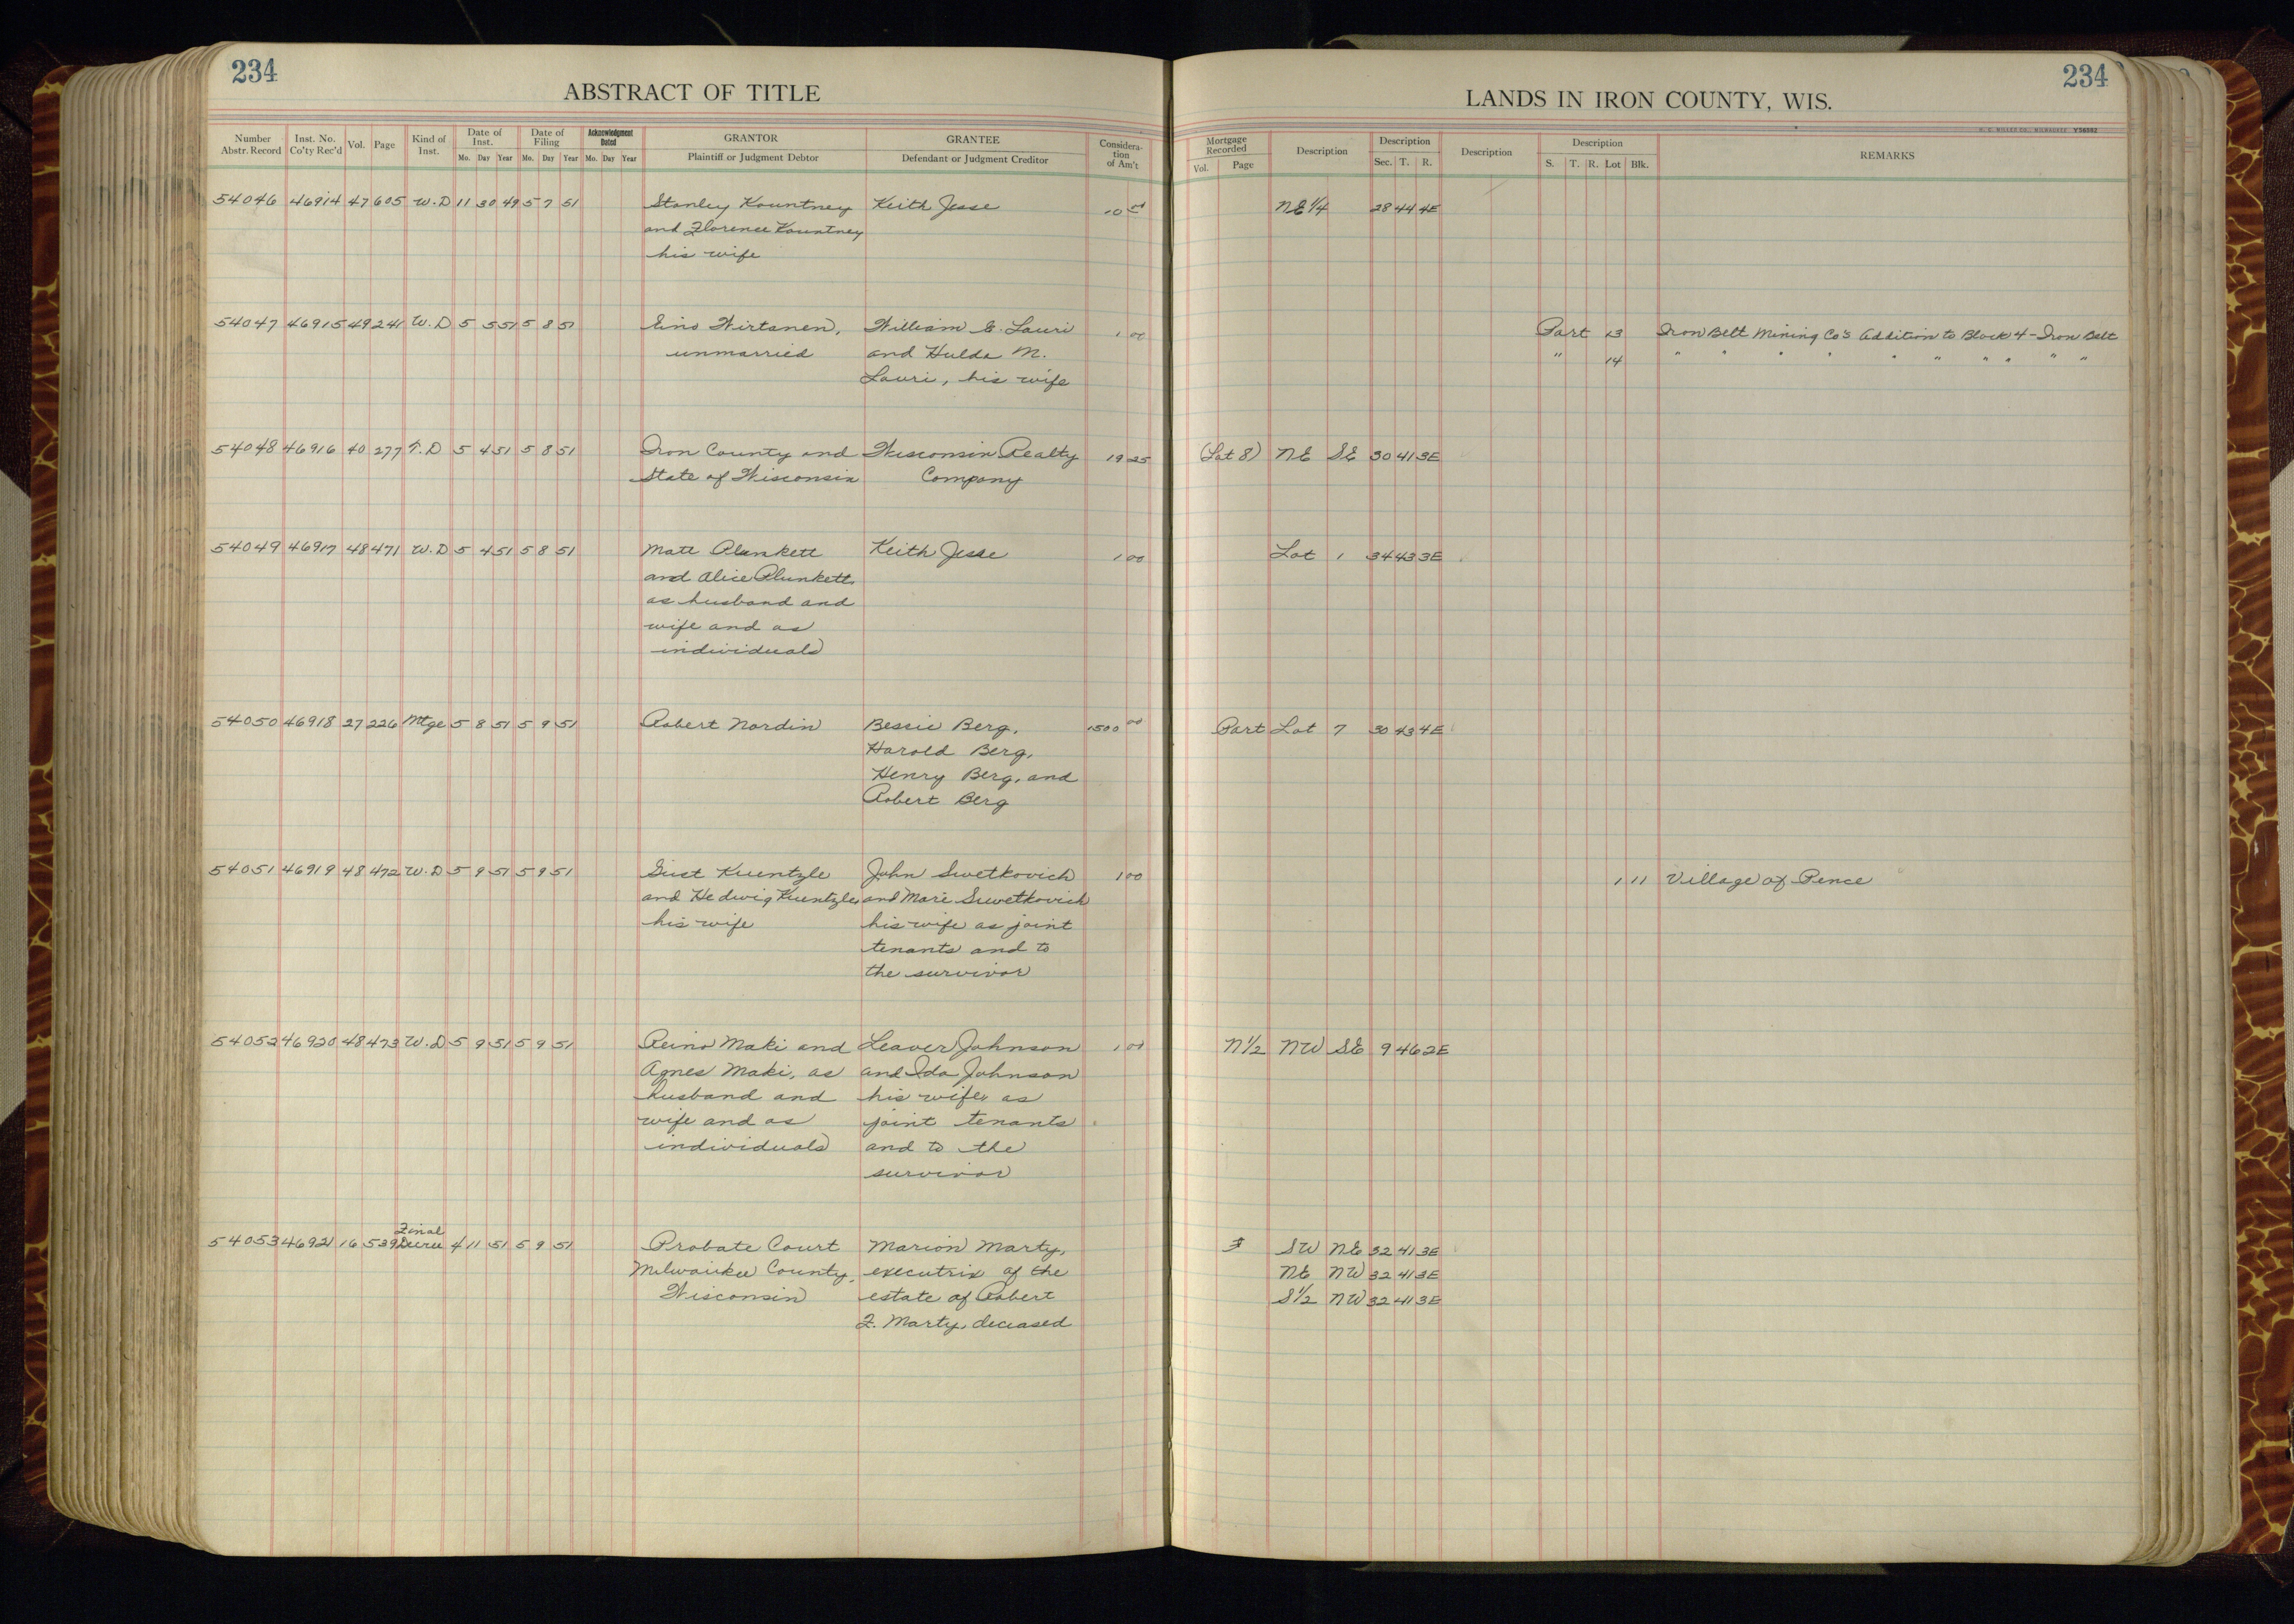 234
ABSTRACT OF TITLE
Number Abstr. Record | Inst. No. Co'ty Rec'd | Vol. | Page | Kind of Inst. | Date of Inst. Mo. Day Year | Date of Filing Mo. Day Year | Acknowledgment Dated Mo. Day Year | GRANTOR Plaintiff or Judgment Debtor | GRANTEE Defendant or Judgment Creditor | Consideration of Am't
LANDS IN IRON COUNTY, WIS.
234
Y56562
Mortgage Recorded Vol. Page | Description | Description Sec. T. R. | Description | Description S. T. R. Lot Blk. | REMARKS
54046 46914 47 605 W.D 11 30 49 5 7 51 Stanley Kountney Keith Jesse 10 00 NE 1/4 28 44 4E
and Florence Kountney
his wife
54047 46915 49 241 W.D 5 5 51 5 8 51 Eino Wirtanen, William E. Lauri 1 00 Part 13 Iron Belt Mining Co's Addition to Block 4 - Iron Belt
unmarried and Hulda M. " 14 " " " " " " " " " "
Lauri, his wife
54048 46916 40 277 T.D 5 4 51 5 8 51 Iron County and Wisconsin Realty 19 25 (Lot 8) NE SE 30 41 3E
State of Wisconsin Company
54049 46917 48 471 W.D 5 4 51 5 8 51 Matt Plunkett Keith Jesse 1 00 Lot 1 34 43 3E
and Alice Plunkett,
as husband and
wife and as
individuals
54050 46918 27 226 Mtge 5 8 51 5 9 51 Robert Nordin Bessie Berg, 1500 00 Part Lot 7 30 43 4E
Harold Berg,
Henry Berg, and
Robert Berg
54051 46919 48 472 W.D 5 9 51 5 9 51 Gust Kuentzle John Swetkovich 1 00 1 11 Village of Pence
and Hedwig Kuentzle, and Marie Swetkovich
his wife his wife as joint
tenants and to
the survivor
54052 46920 48 473 W.D 5 9 51 5 9 51 Reino Maki and Leaver Johnson 1 00 N1/2 NW SE 9 46 2E
Agnes Maki, as and Ida Johnson
husband and his wife, as
wife and as joint tenants
individuals and to the
survivor
54053 46921 16 539 Final Decree 4 11 51 5 9 51 Probate Court Marion Marty, SW NE 32 41 3E
Milwaukee County, executrix of the NE NW 32 41 3E
Wisconsin estate of Robert S1/2 NW 32 41 3E
F. Marty, deceased